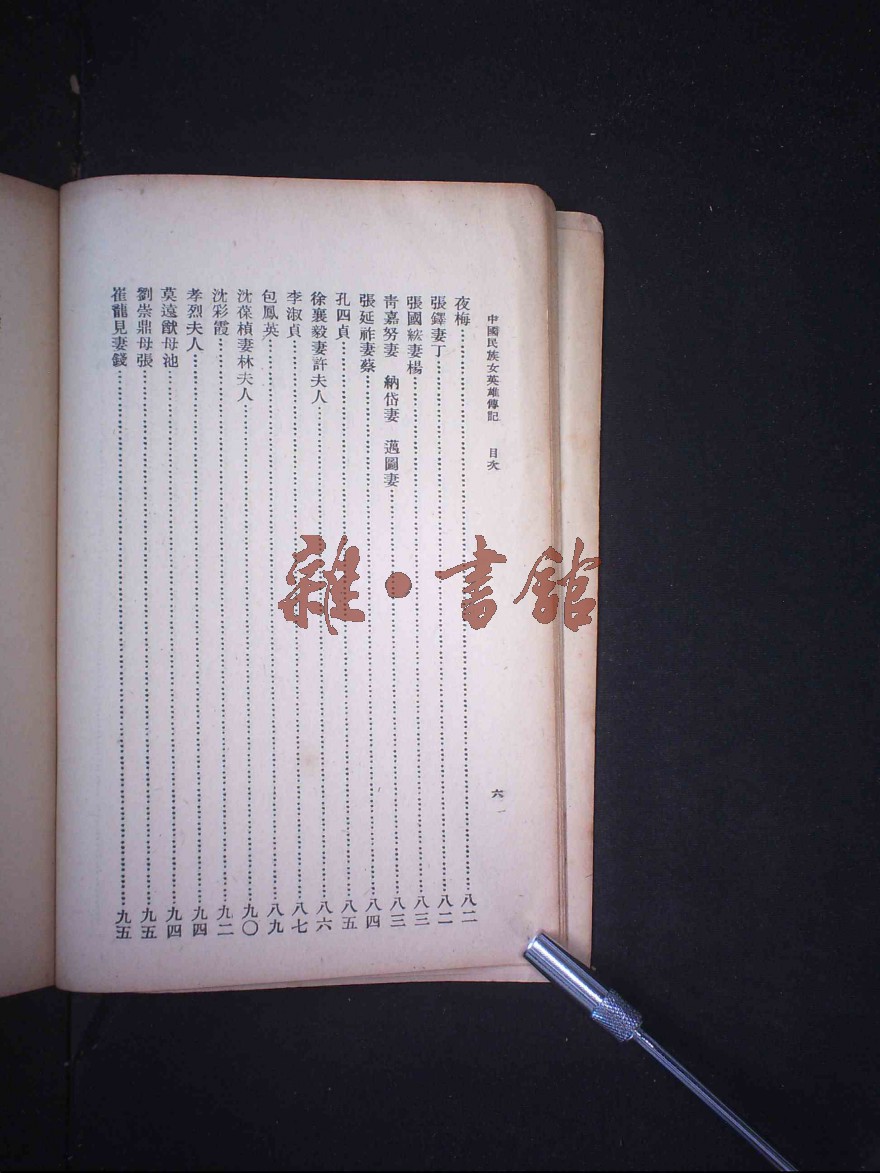 中國民族女英雄傳記 目次 六
夜梅……八二
張鐸妻丁……八二
張國紘妻楊……八三
靑嘉努妻 納岱妻 邁圖妻……八三
張延祚妻蔡……八四
孔四貞……八五
徐襄毅妻許夫人……八六
李淑貞……八七
包鳳英……八九
沈葆楨妻林夫人……九〇
沈彩霞……九二
孝烈夫人……九四
莫遠猷母池……九四
劉崇鼎母張……九五
崔龍見妻錢……九五
雜·書館